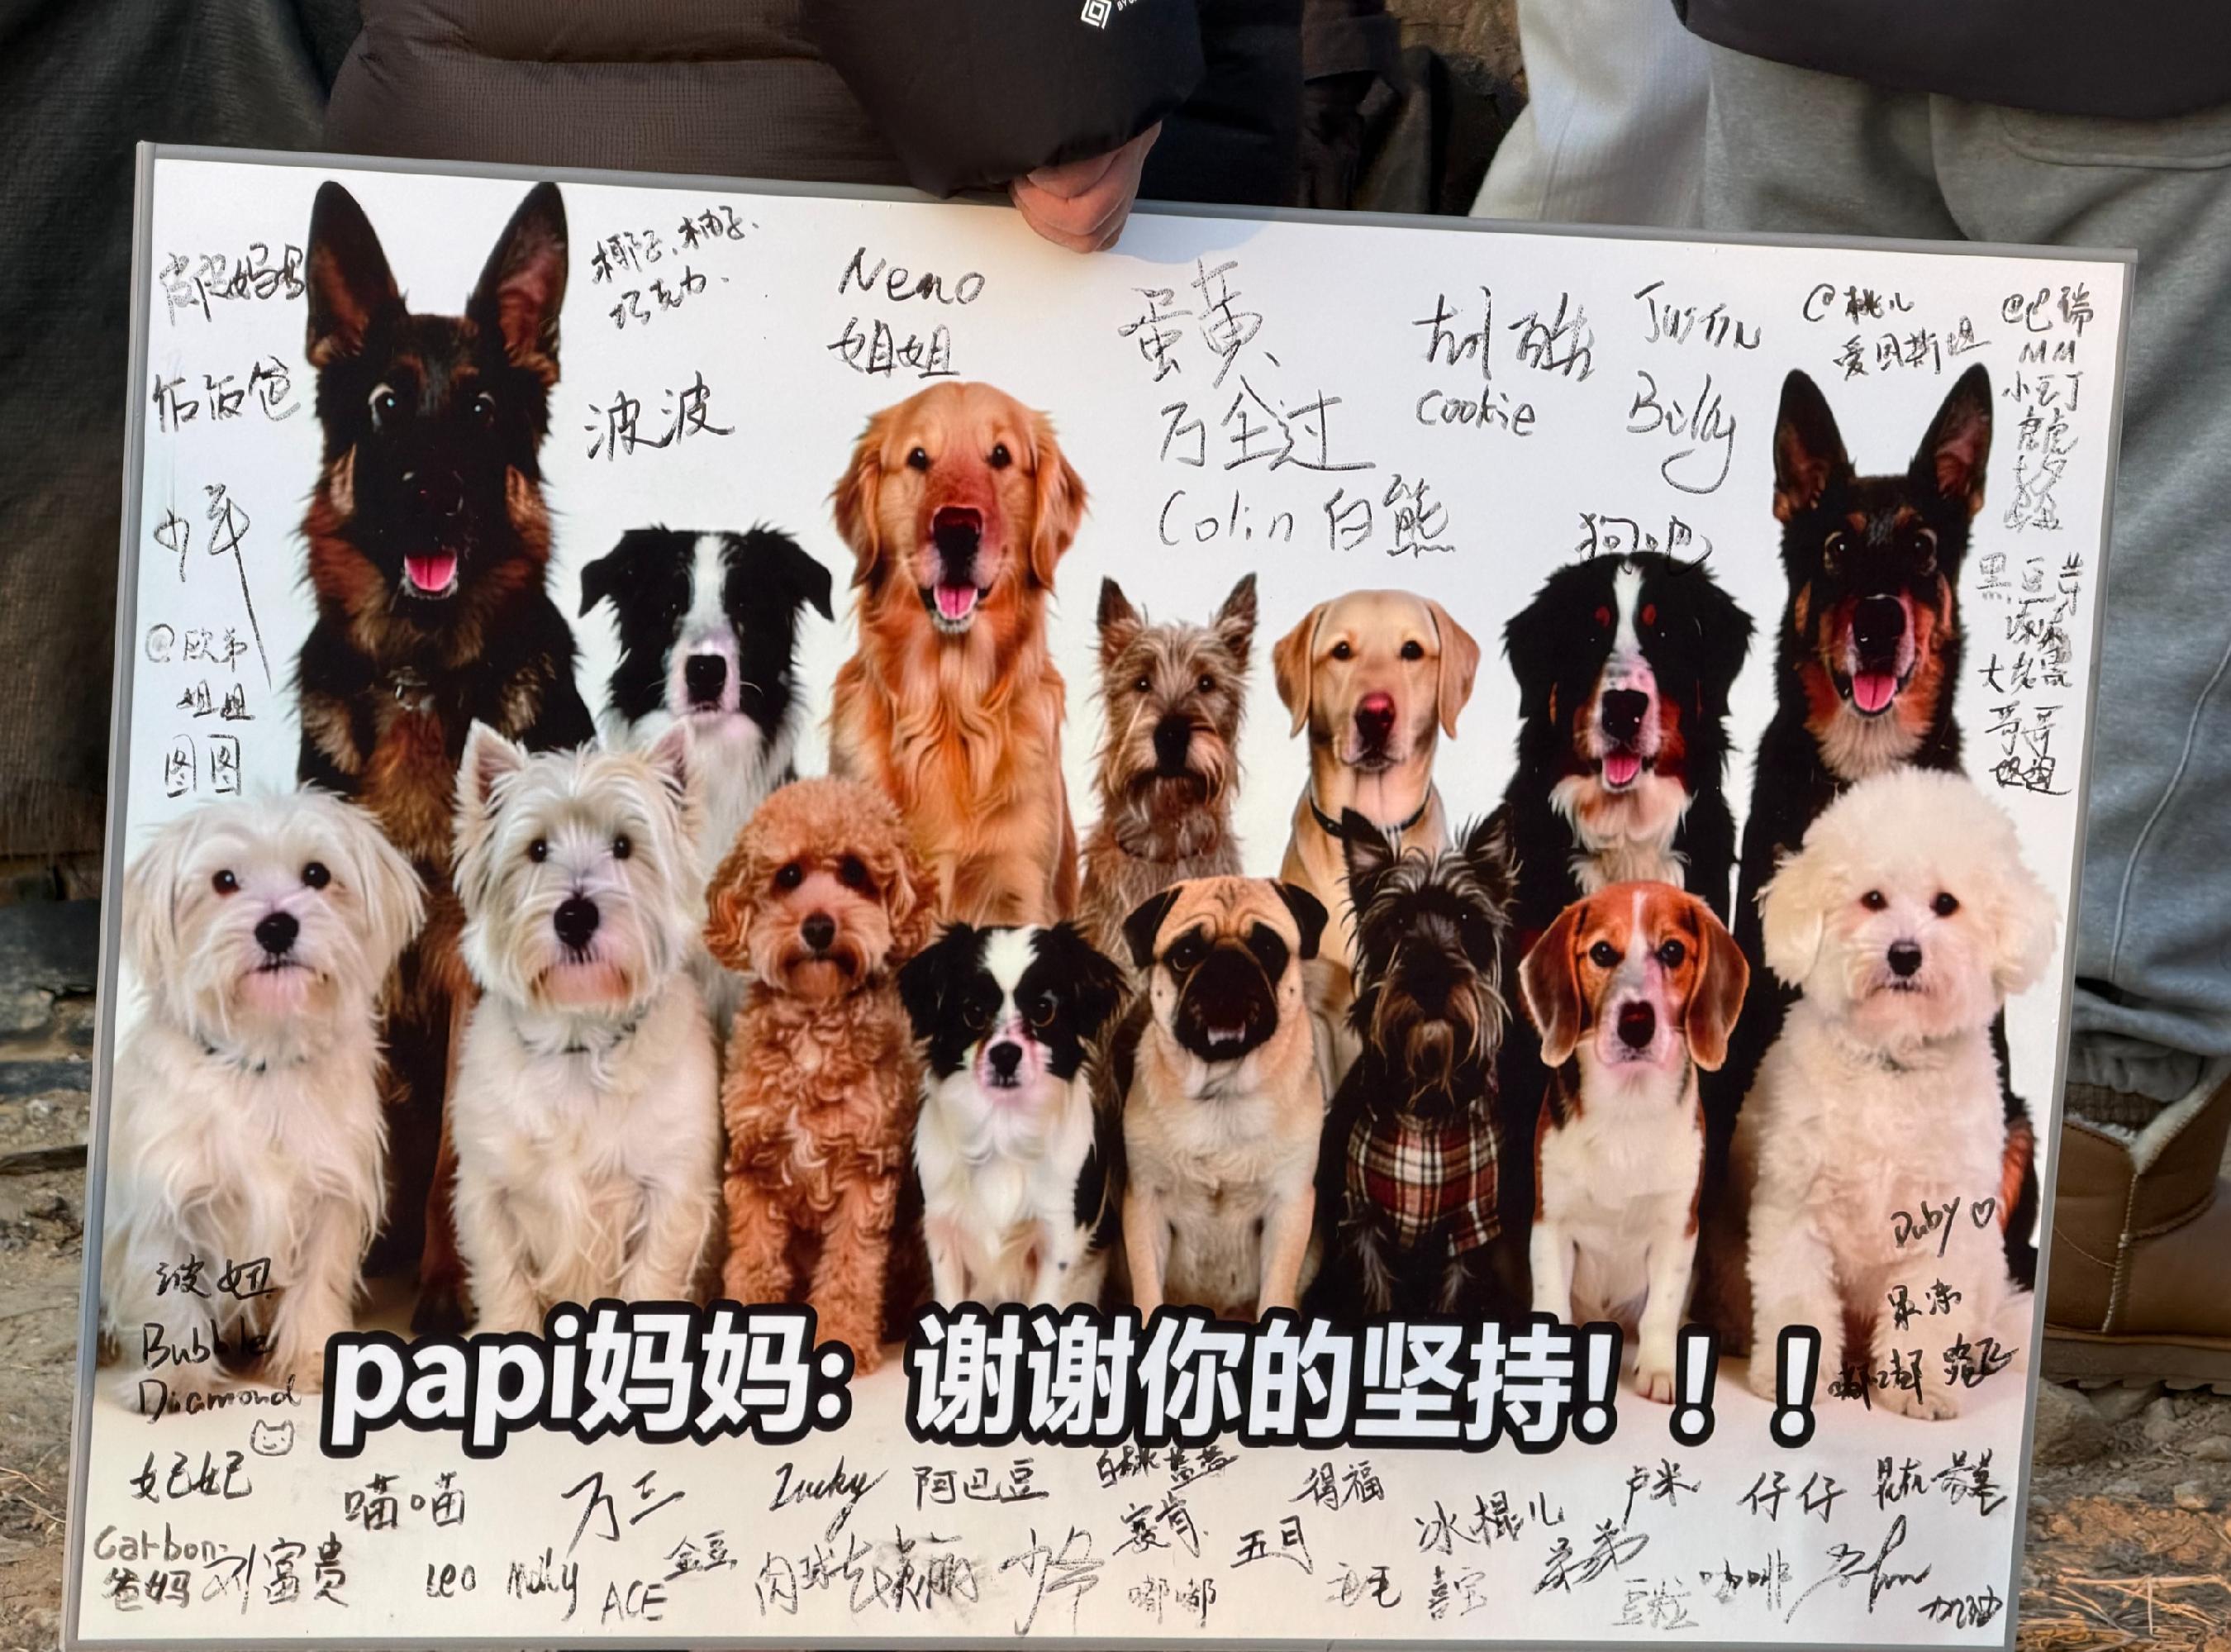 妈妈
椰子、柚子、
巧克力.
Neno
姐姐
波波
蛋黄、
万全过
Colin 白熊
胡 酷
Cookie
Justin
Billy
狗吧
@桃儿
爱贝斯坦
@巴瑞
MM
小豆丁
黑豆
大老黑
哥哥
姐姐
@欧弟
姐姐
图图
波妞
Bubble
Diamond
Ruby ♡
果冻
嘟嘟
papi妈妈:谢谢你的坚持!!!
妃妃
喵喵
万三
Lucky
阿巴豆
白桃
赛肯
得福
冰棍儿
卢米
仔仔
Carbon.
爸妈
刘富贵
Leo
Molly
ACE
金豆
肉球
少爷
嘟嘟
五月
毛毛
喜宝
弟弟
豆粒
咖啡
加油